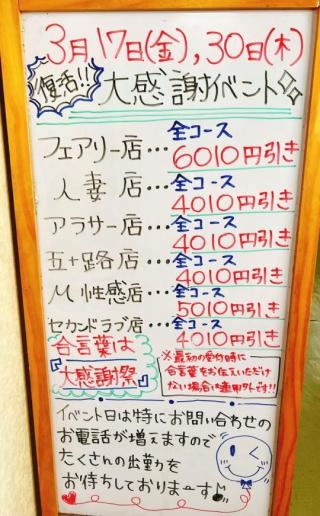 3月17日(金),30日(木)
復活!!
大感謝イベント
フェアリー店…全コース
6010円引き
人妻 店…全コース
4010円引き
アラサー店…全コース
4010円引き
五十路店…全コース
4010円引き
M性感店…全コース
5010円引き
セカンドラブ店…全コース
4010円引き
合言葉は
『大感謝祭』
※最初の受付時に
合言葉をお伝えいただけ
ない場合は適用外です!!
イベント日は特にお問い合わせの
お電話が増えますので
たくさんの出勤を
お待ちしておりまーす